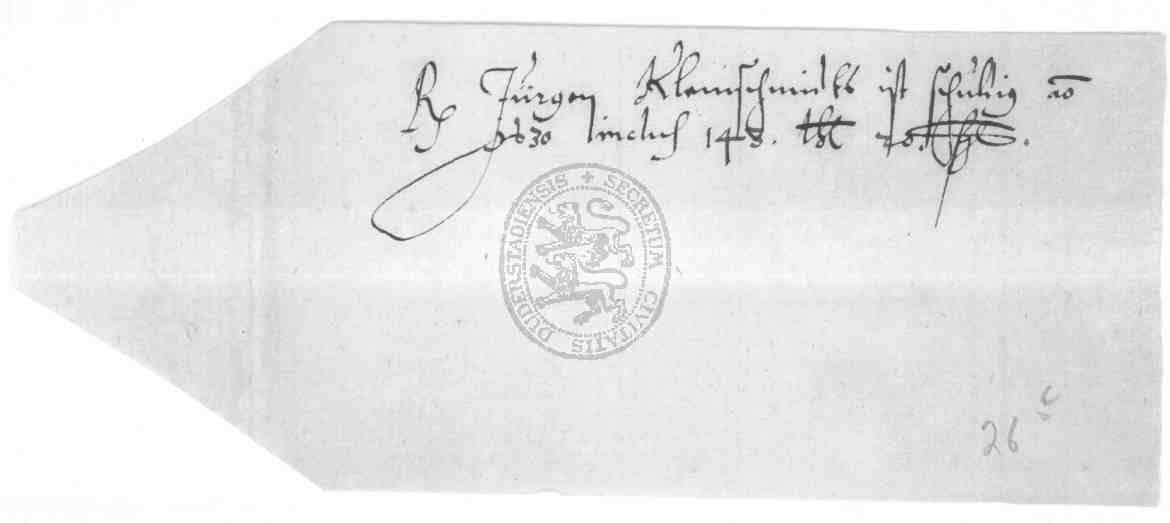 R Jürgen Kleinschmidts ist schuldig ao
1630 inclus 148. thl
SECRETUM CIVITATIS DUDERSTADIENSIS
26 c